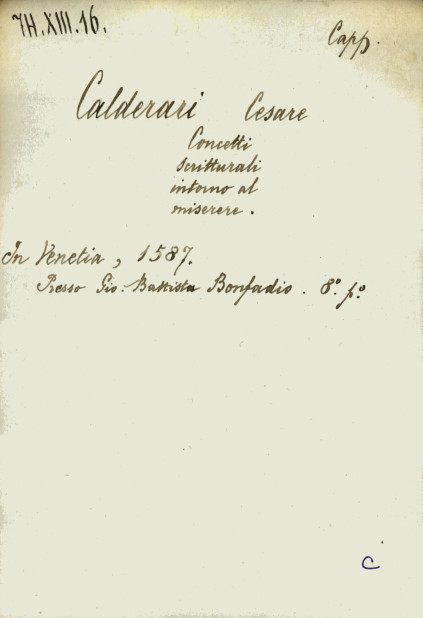 7H.XIII.16.
Capp.
Calderari Cesare
Concetti
scritturali
intorno al
miserere.
In Venetia, 1587.
Presso Gio. Battista Bonfadio. 8º. pº.
C